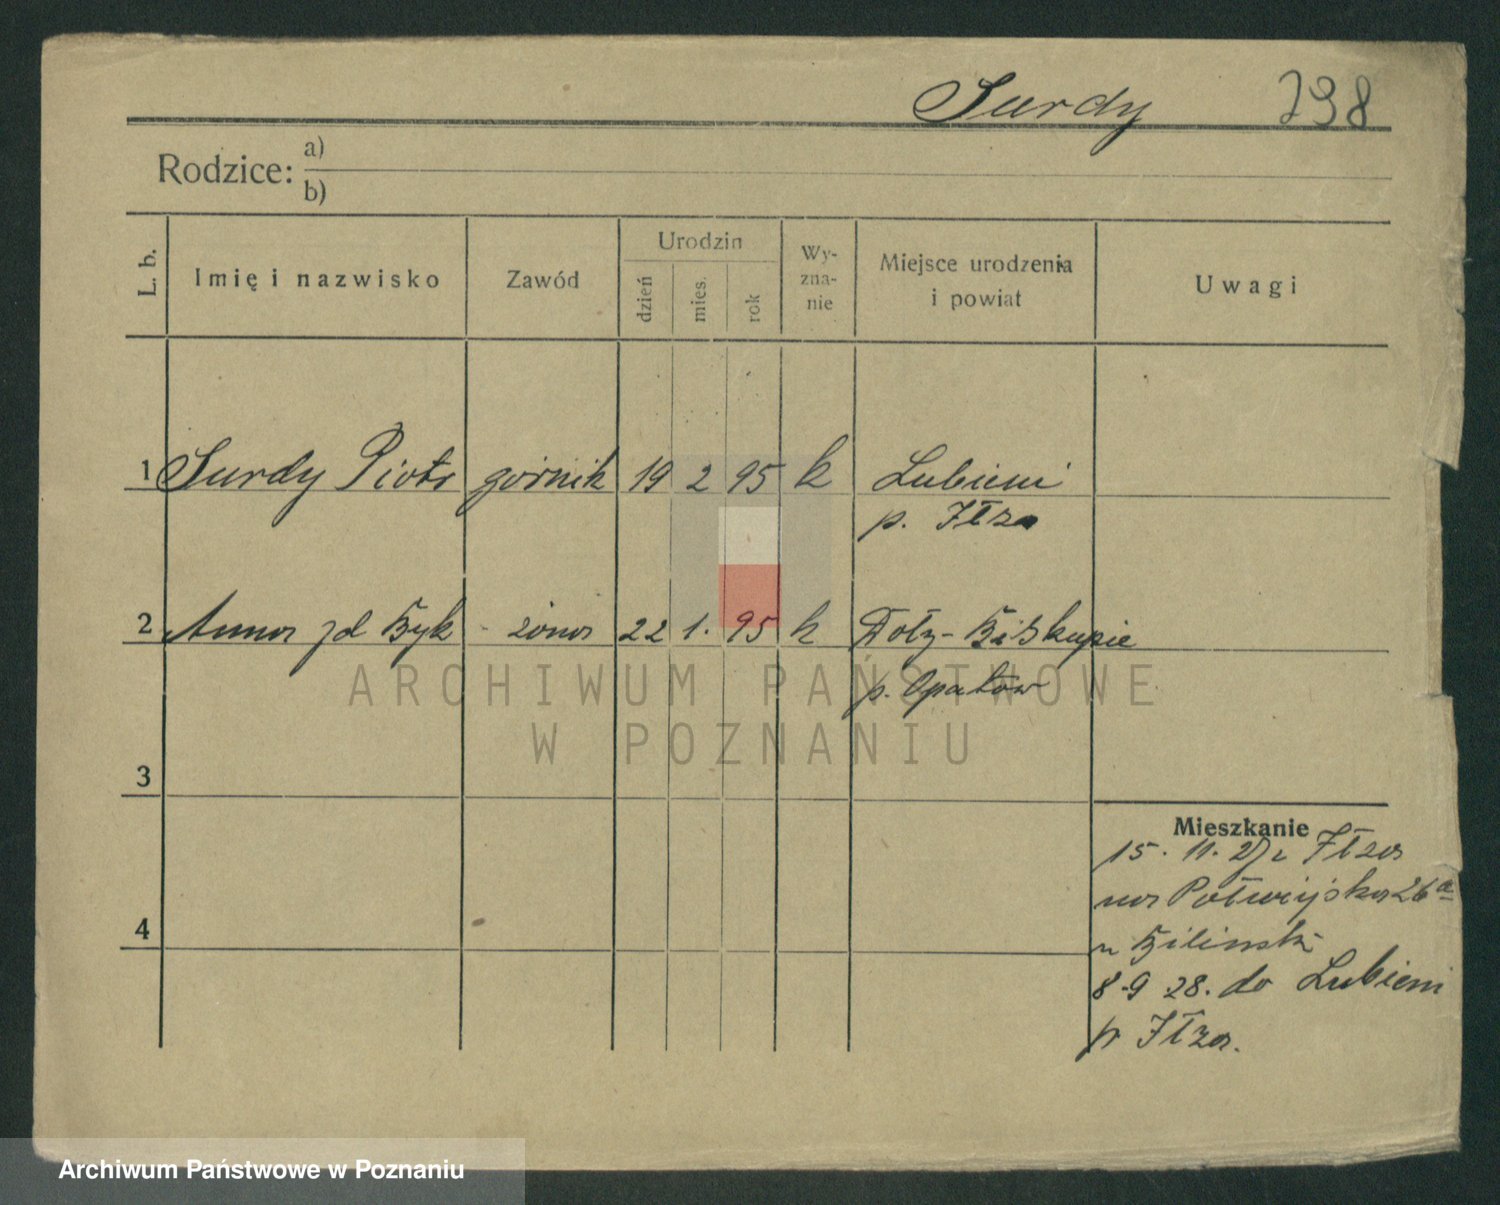 Surdy 798
Rodzice: a)
b)
L. b. Imię i nazwisko Zawód Urodzin dzień mies. rok Wy-zna-nie Miejsce urodzenia i powiat Uwagi
1 Surdy Piotr górnik 19 2 95 k Lubieni
p. Iłża
2 Anna zd Byk - żona 22 1. 95 k Doły-Biskupie
p. Opatów
ARCHIWUM PAŃSTWOWE
W POZNANIU
3
Mieszkanie
15. 11. 27 z Iłża
4
na Potwijska 26a
u Bilinski
8-9 28. do Lubieni
p Iłża.
Archiwum Państwowe w Poznaniu